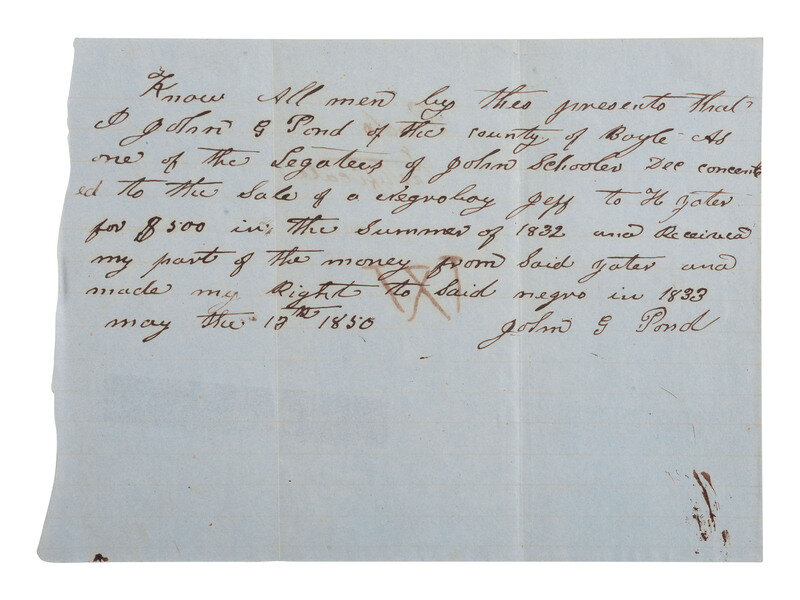 Know All men by thes presents that
I John G Pond of the county of Boyle As
one of the Legatees of John Schooler Dec concent
ed to the Sale of a Negroboy Jeff to H Yater
for $500 in the Summer of 1832 and Received
my part of the money from Said Yater and
made my Right to Said negro in 1833
may the 13th 1850 John G Pond